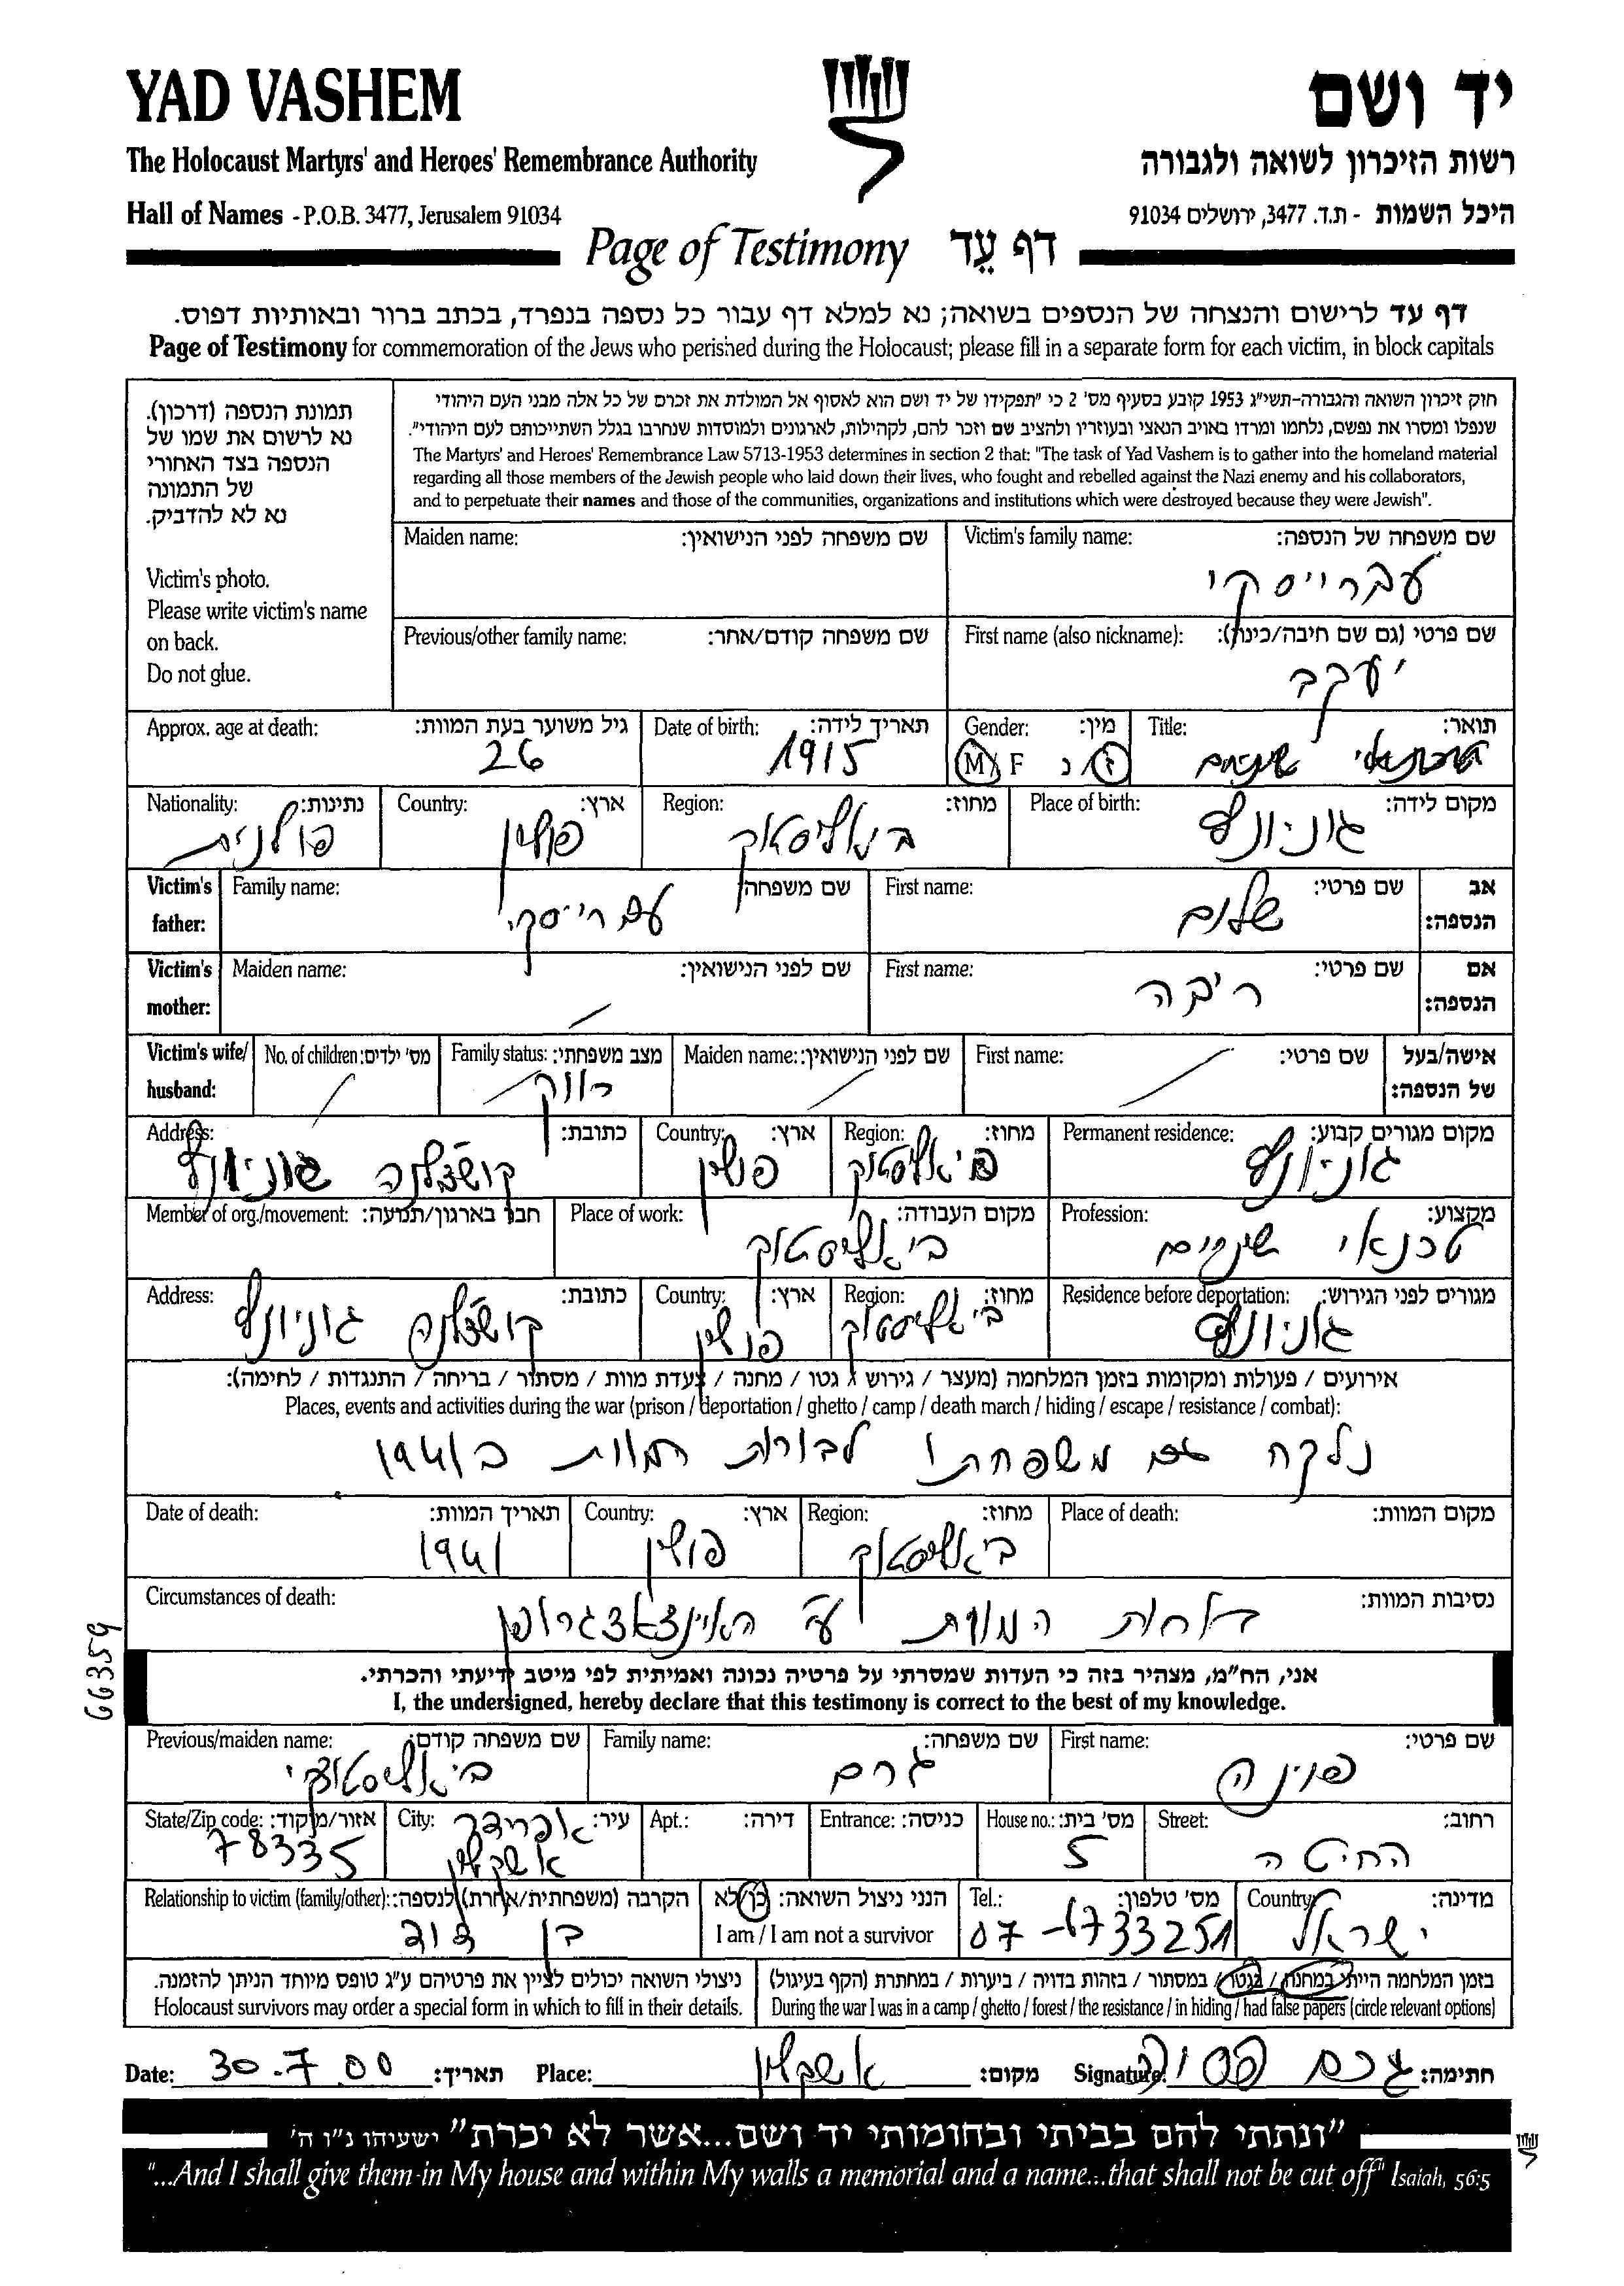 YAD VASHEM
יד ושם
The Holocaust Martyrs' and Heroes' Remembrance Authority
רשות הזיכרון לשואה ולגבורה
Hall of Names - P.O.B. 3477, Jerusalem 91034
היכל השמות - ת.ד. 3477, ירושלים 91034
Page of Testimony דף עֵד
דף עד לרישום והנצחה של הנספים בשואה; נא למלא דף עבור כל נספה בנפרד, בכתב ברור ובאותיות דפוס.
Page of Testimony for commemoration of the Jews who perished during the Holocaust; please fill in a separate form for each victim, in block capitals
תמונת הנספה (דרכון).
נא לרשום את שמו של
הנספה בצד האחורי
של התמונה
נא לא להדביק.
Victim's photo.
Please write victim's name
on back.
Do not glue.
חוק זיכרון השואה והגבורה-תשי"ג 1953 קובע בסעיף מס' 2 כי "תפקידו של יד ושם הוא לאסוף אל המולדת את זכרם של כל אלה מבני העם היהודי
שנפלו ומסרו את נפשם, נלחמו ומרדו באויב הנאצי ובעוזריו ולהציב שם וזכר להם, לקהילות, לארגונים ולמוסדות שנחרבו בגלל השתייכותם לעם היהודי".
The Martyrs' and Heroes' Remembrance Law 5713-1953 determines in section 2 that: "The task of Yad Vashem is to gather into the homeland material
regarding all those members of the Jewish people who laid down their lives, who fought and rebelled against the Nazi enemy and his collaborators,
and to perpetuate their names and those of the communities, organizations and institutions which were destroyed because they were Jewish".
Maiden name: שם משפחה לפני הנישואין:
Victim's family name: שם משפחה של הנספה:
עברייסקי
Previous/other family name: שם משפחה קודם/אחר:
First name (also nickname): שם פרטי (גם שם חיבה/כינוי):
יעקב
Approx. age at death: גיל משוער בעת המוות:
26
Date of birth: תאריך לידה:
1915
Gender: מין:
M/F ז/נ
Title: תואר:
שיניים
Nationality: נתינות:
פולנית
Country: ארץ:
פולין
Region: מחוז:
ביאליסטוק
Place of birth: מקום לידה:
גוניונדz
Victim's father: Family name: שם משפחה:
עברייסקי
First name: שם פרטי: אב הנספה:
שלום
Victim's mother: Maiden name: שם לפני הנישואין:
First name: שם פרטי: אם הנספה:
ריבה
Victim's wife/husband: No. of children: מס' ילדים:
Family status: מצב משפחתי:
רווק
Maiden name: שם לפני הנישואין:
First name: שם פרטי: אישה/בעל של הנספה:
Address: כתובת:
Country: ארץ:
פולין
Region: מחוז:
ביאליסטוק
Permanent residence: מקום מגורים קבוע:
Member of org./movement: חבר בארגון/תנועה:
Place of work: מקום העבודה:
ביאליסטוק
Profession: מקצוע:
טכנאי שיניים
Address: כתובת:
Country: ארץ:
פולין
Region: מחוז:
ביאליסטוק
Residence before deportation: מגורים לפני הגירוש:
אירועים / פעולות ומקומות בזמן המלחמה (מעצר / גירוש / גטו / מחנה / צעדת מוות / מסתור / בריחה / התנגדות / לחימה):
Places, events and activities during the war (prison / deportation / ghetto / camp / death march / hiding / escape / resistance / combat):
נלקח עם משפחתו לבורות המוות ב 1941
Date of death: תאריך המוות:
1941
Country: ארץ:
פולין
Region: מחוז:
ביאליסטוק
Place of death: מקום המוות:
Circumstances of death: נסיבות המוות:
המוות ע"י האיינצאצגרופן
66359
אני, הח"מ, מצהיר בזה כי העדות שמסרתי על פרטיה נכונה ואמיתית לפי מיטב ידיעתי והכרתי.
I, the undersigned, hereby declare that this testimony is correct to the best of my knowledge.
Previous/maiden name: שם משפחה קודם:
ביאליסטוצקי
Family name: שם משפחה:
גרם
First name: שם פרטי:
פנינה
State/Zip code: אזור/מיקוד:
78335
City: עיר:
אפרידר
אשקלון
Apt.: דירה:
Entrance: כניסה:
House no.: מס' בית:
5
Street: רחוב:
החיטה
Relationship to victim (family/other): הקרבה (משפחתית/אחרת) לנספה:
בן דוד
הנני ניצול השואה: כן/לא
I am / I am not a survivor
Tel.: מס' טלפון:
07-6733251
Country: מדינה:
ישראל
ניצולי השואה יכולים לציין את פרטיהם ע"ג טופס מיוחד הניתן להזמנה.
Holocaust survivors may order a special form in which to fill in their details.
בזמן המלחמה הייתי במחנה / בגטו / במסתור / בזהות בדויה / ביערות / במחתרת (הקף בעיגול)
During the war I was in a camp / ghetto / forest / the resistance / in hiding / had false papers (circle relevant options)
Date: 30.7.00 תאריך: Place: אשקלון מקום: Signature: גרם פנינה חתימה:
"ונתתי להם בביתי ובחומותי יד ושם...אשר לא יכרת" ישעיהו נ"ו ה'
"...And I shall give them in My house and within My walls a memorial and a name...that shall not be cut off" Isaiah, 56:5